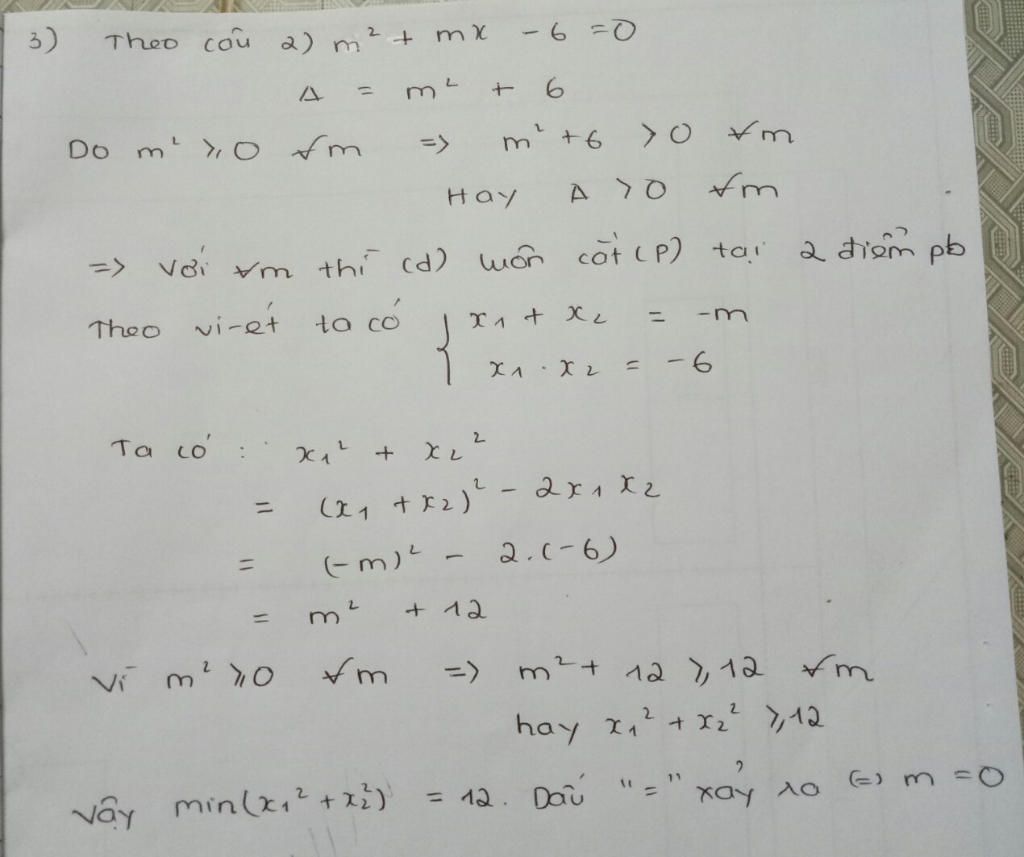 3) Theo câu 2) m² + mx - 6 = 0
Δ = m² + 6
Do m² ≥ 0 ∀m => m² + 6 > 0 ∀m
Hay Δ > 0 ∀m
=> Với ∀m thì (d) luôn cắt (P) tại 2 điểm pb
Theo vi-ét ta có { x₁ + x₂ = -m
x₁ . x₂ = -6
Ta có : x₁² + x₂²
= (x₁ + x₂)² - 2x₁x₂
= (-m)² - 2.(-6)
= m² + 12
Vì m² ≥ 0 ∀m => m² + 12 ≥ 12 ∀m
hay x₁² + x₂² ≥ 12
Vậy min(x₁² + x₂²) = 12. Dấu "=" xảy ra (=) m = 0